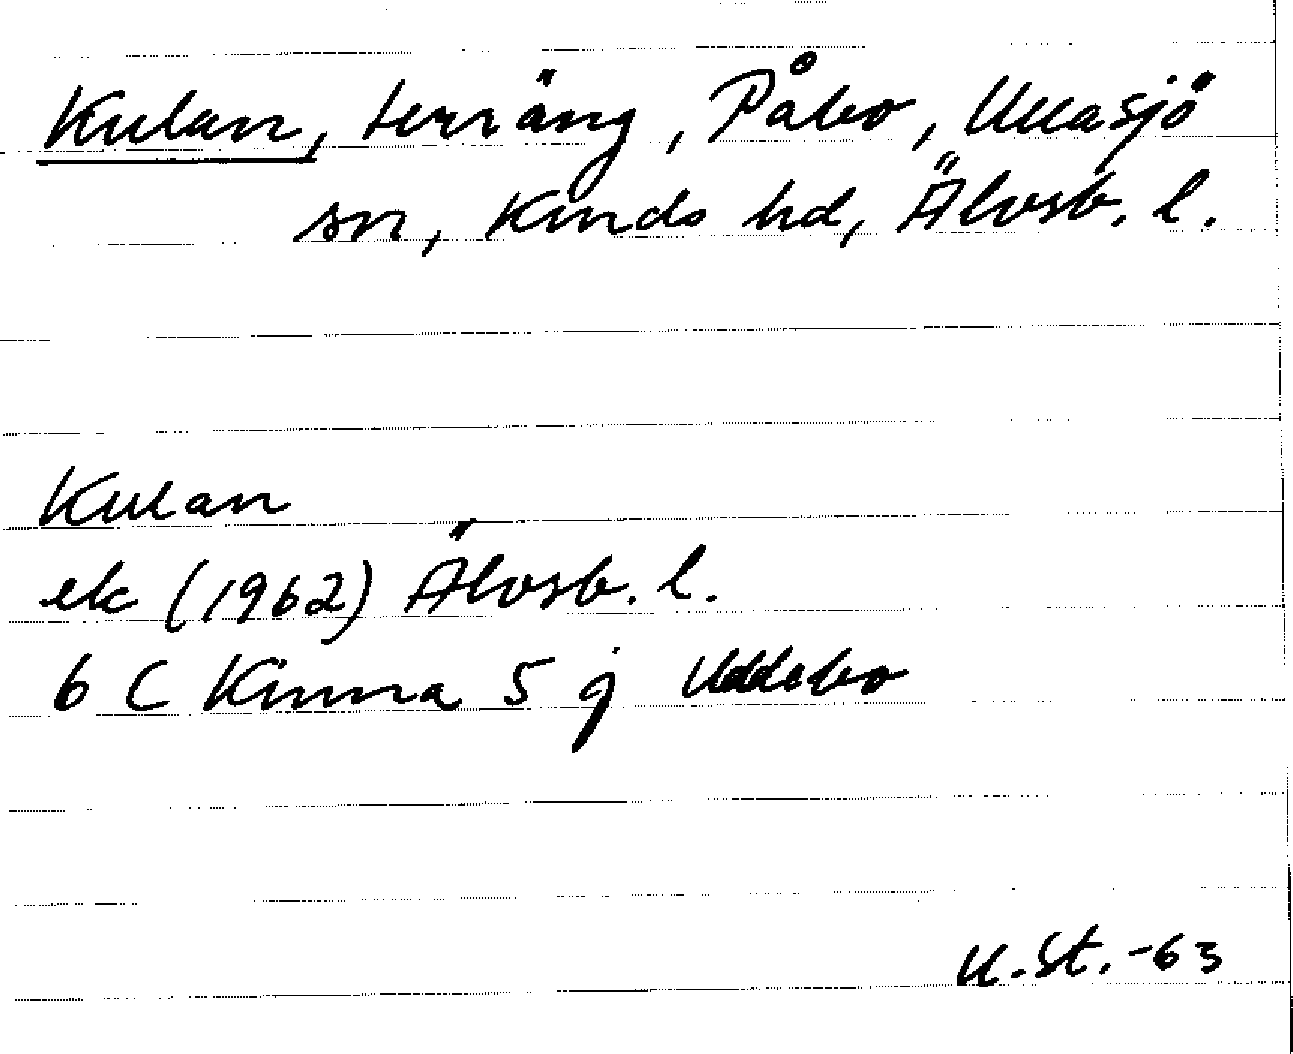 Kulan, terräng, Påbo, Ullasjö
sn, Kinds hd, Älvsb. l.
Kulan
ek (1962) Älvsb. l.
6 C Kinna 5 j Uddebo
U.St. -63